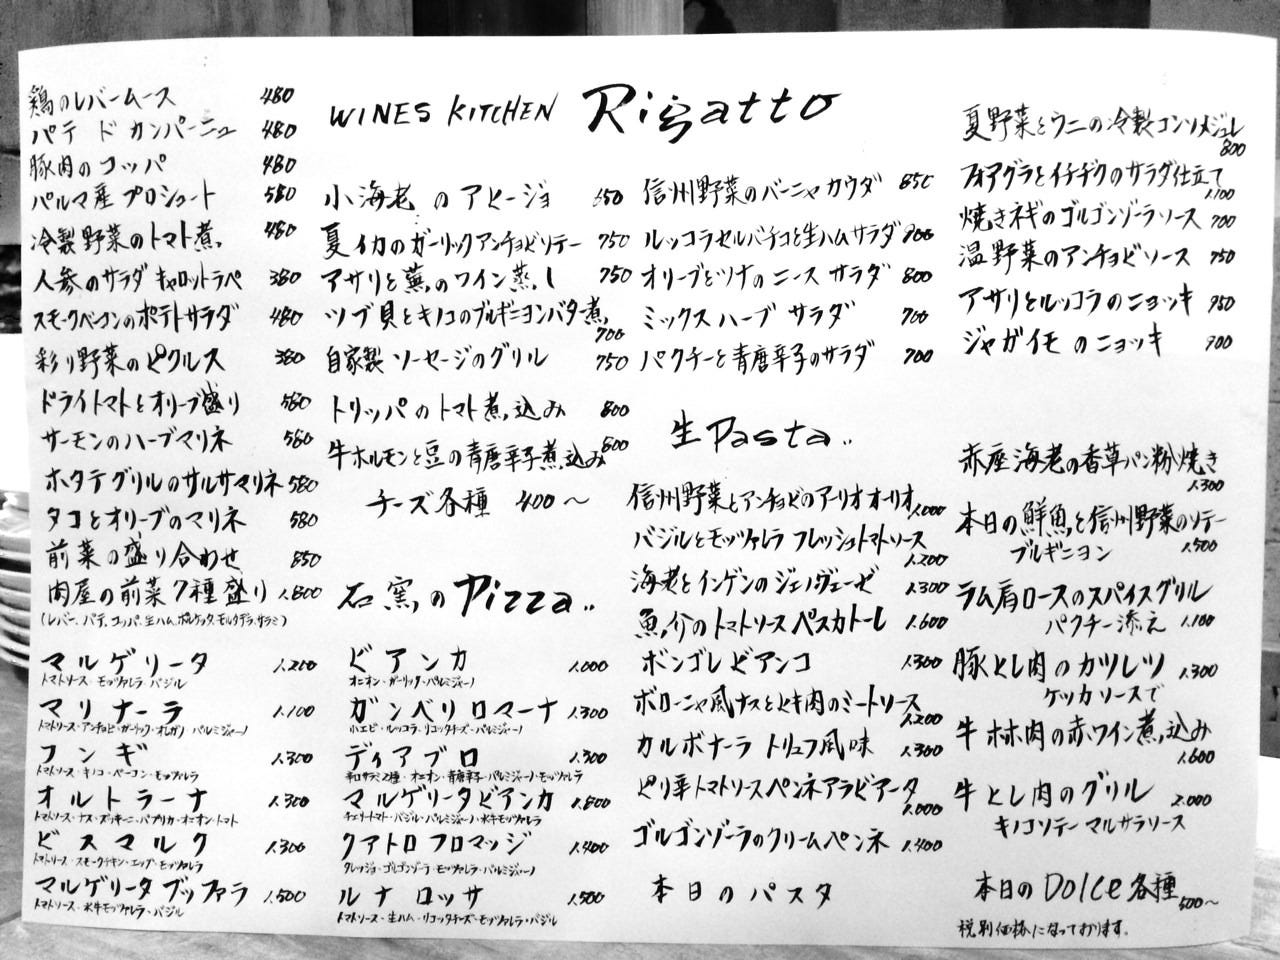 WINES KITCHEN Rigatto
鶏のレバームース 480
パテ ド カンパーニュ 480
豚肉のコッパ 480
パルマ産プロシュート 580
冷製野菜のトマト煮 480
人参のサラダ キャロットラペ 380
スモークベーコンのポテトサラダ 480
彩り野菜のピクルス 380
ドライトマトとオリーブ盛り 580
サーモンのハーブマリネ 580
ホタテグリルのサルサマリネ 580
タコとオリーブのマリネ 580
前菜の盛り合わせ 850
肉屋の前菜7種盛り 1.800
(レバー、パテ、コッパ、生ハム、ポルケッタ、モルタデラ、サラミ)
小海老のアヒージョ 650
夏イカのガーリックアンチョビソテー 750
アサリと蕪のワイン蒸し 750
ツブ貝とキノコのブルギニヨンバタ煮
700
自家製ソーセージのグリル 750
トリッパのトマト煮込み 800
牛ホルモンと豆の青唐辛子煮込み 800
チーズ各種 400〜
信州野菜のバーニャカウダ 850
ルッコラセルバチコと生ハムサラダ 900
オリーブとツナのニースサラダ 800
ミックスハーブ サラダ 700
パクチーと青唐辛子のサラダ 700
夏野菜とウニの冷製コンソメジュレ
800
フォアグラとイチヂクのサラダ仕立て
1.100
焼きネギのゴルゴンゾーラソース 700
温野菜のアンチョビソース 750
アサリとルッコラのニョッキ 950
ジャガイモのニョッキ 700
石窯のPizza..
マルゲリータ 1.200
トマトソース・モッツァレラ・バジル
マリナーラ 1.100
トマトソース・アンチョビ・ガーリック・オレガノ・パルミジャーノ
フンギ 1.300
トマトソース・キノコ・ベーコン・モッツァレラ
オルトラーナ 1.300
トマトソース・ナス・ズッキーニ・パプリカ・オニオン・トマト
ビスマルク 1.300
トマトソース・スモークチキン・エッグ・モッツァレラ
マルゲリータ ブッファラ 1.500
トマトソース・水牛モッツァレラ・バジル
ビアンカ 1.000
オニオン・ガーリック・パルミジャーノ
ガンベリロマーナ 1.300
小エビ・ルッコラ・リコッタチーズ・パルミジャーノ
ディアブロ 1.300
辛口サラミ2種・オニオン・青唐辛子・パルミジャーノ・モッツァレラ
マルゲリータビアンカ 1.800
チェリートマト・バジル・パルミジャーノ・水牛モッツァレラ
クアトロフロマッジ 1.400
タレッジョ・ゴルゴンゾーラ・モッツァレラ・パルミジャーノ
ルナ ロッサ 1.500
トマトソース・生ハム・リコッタチーズ・モッツァレラ・バジル
生Pasta..
信州野菜とアンチョビのアーリオオーリオ 1.000
バジルとモッツァレラ フレッシュトマトソース
1.200
海老とインゲンのジェノヴェーゼ 1.300
魚介のトマトソースペスカトーレ 1.600
ボンゴレビアンコ 1.300
ボローニャ風ナスとセキ肉のミートソース
1.200
カルボナーラ トリュフ風味 1.300
ピリ辛トマトソースペンネアラビアータ
1.000
ゴルゴンゾーラのクリームペンネ 1.400
本日のパスタ
赤座海老の香草パン粉焼き
1.300
本日の鮮魚と信州野菜のソテー
ブルギニヨン 1.500
ラム肩ロースのスパイスグリル
パクチー添え 1.100
豚とし肉のカツレツ 1.300
ケッカソースで
牛ホホ肉の赤ワイン煮込み
1.600
牛とし肉のグリル 2.000
キノコソテー マルサラソース
本日のDolce各種
500〜
税別価格になっております。